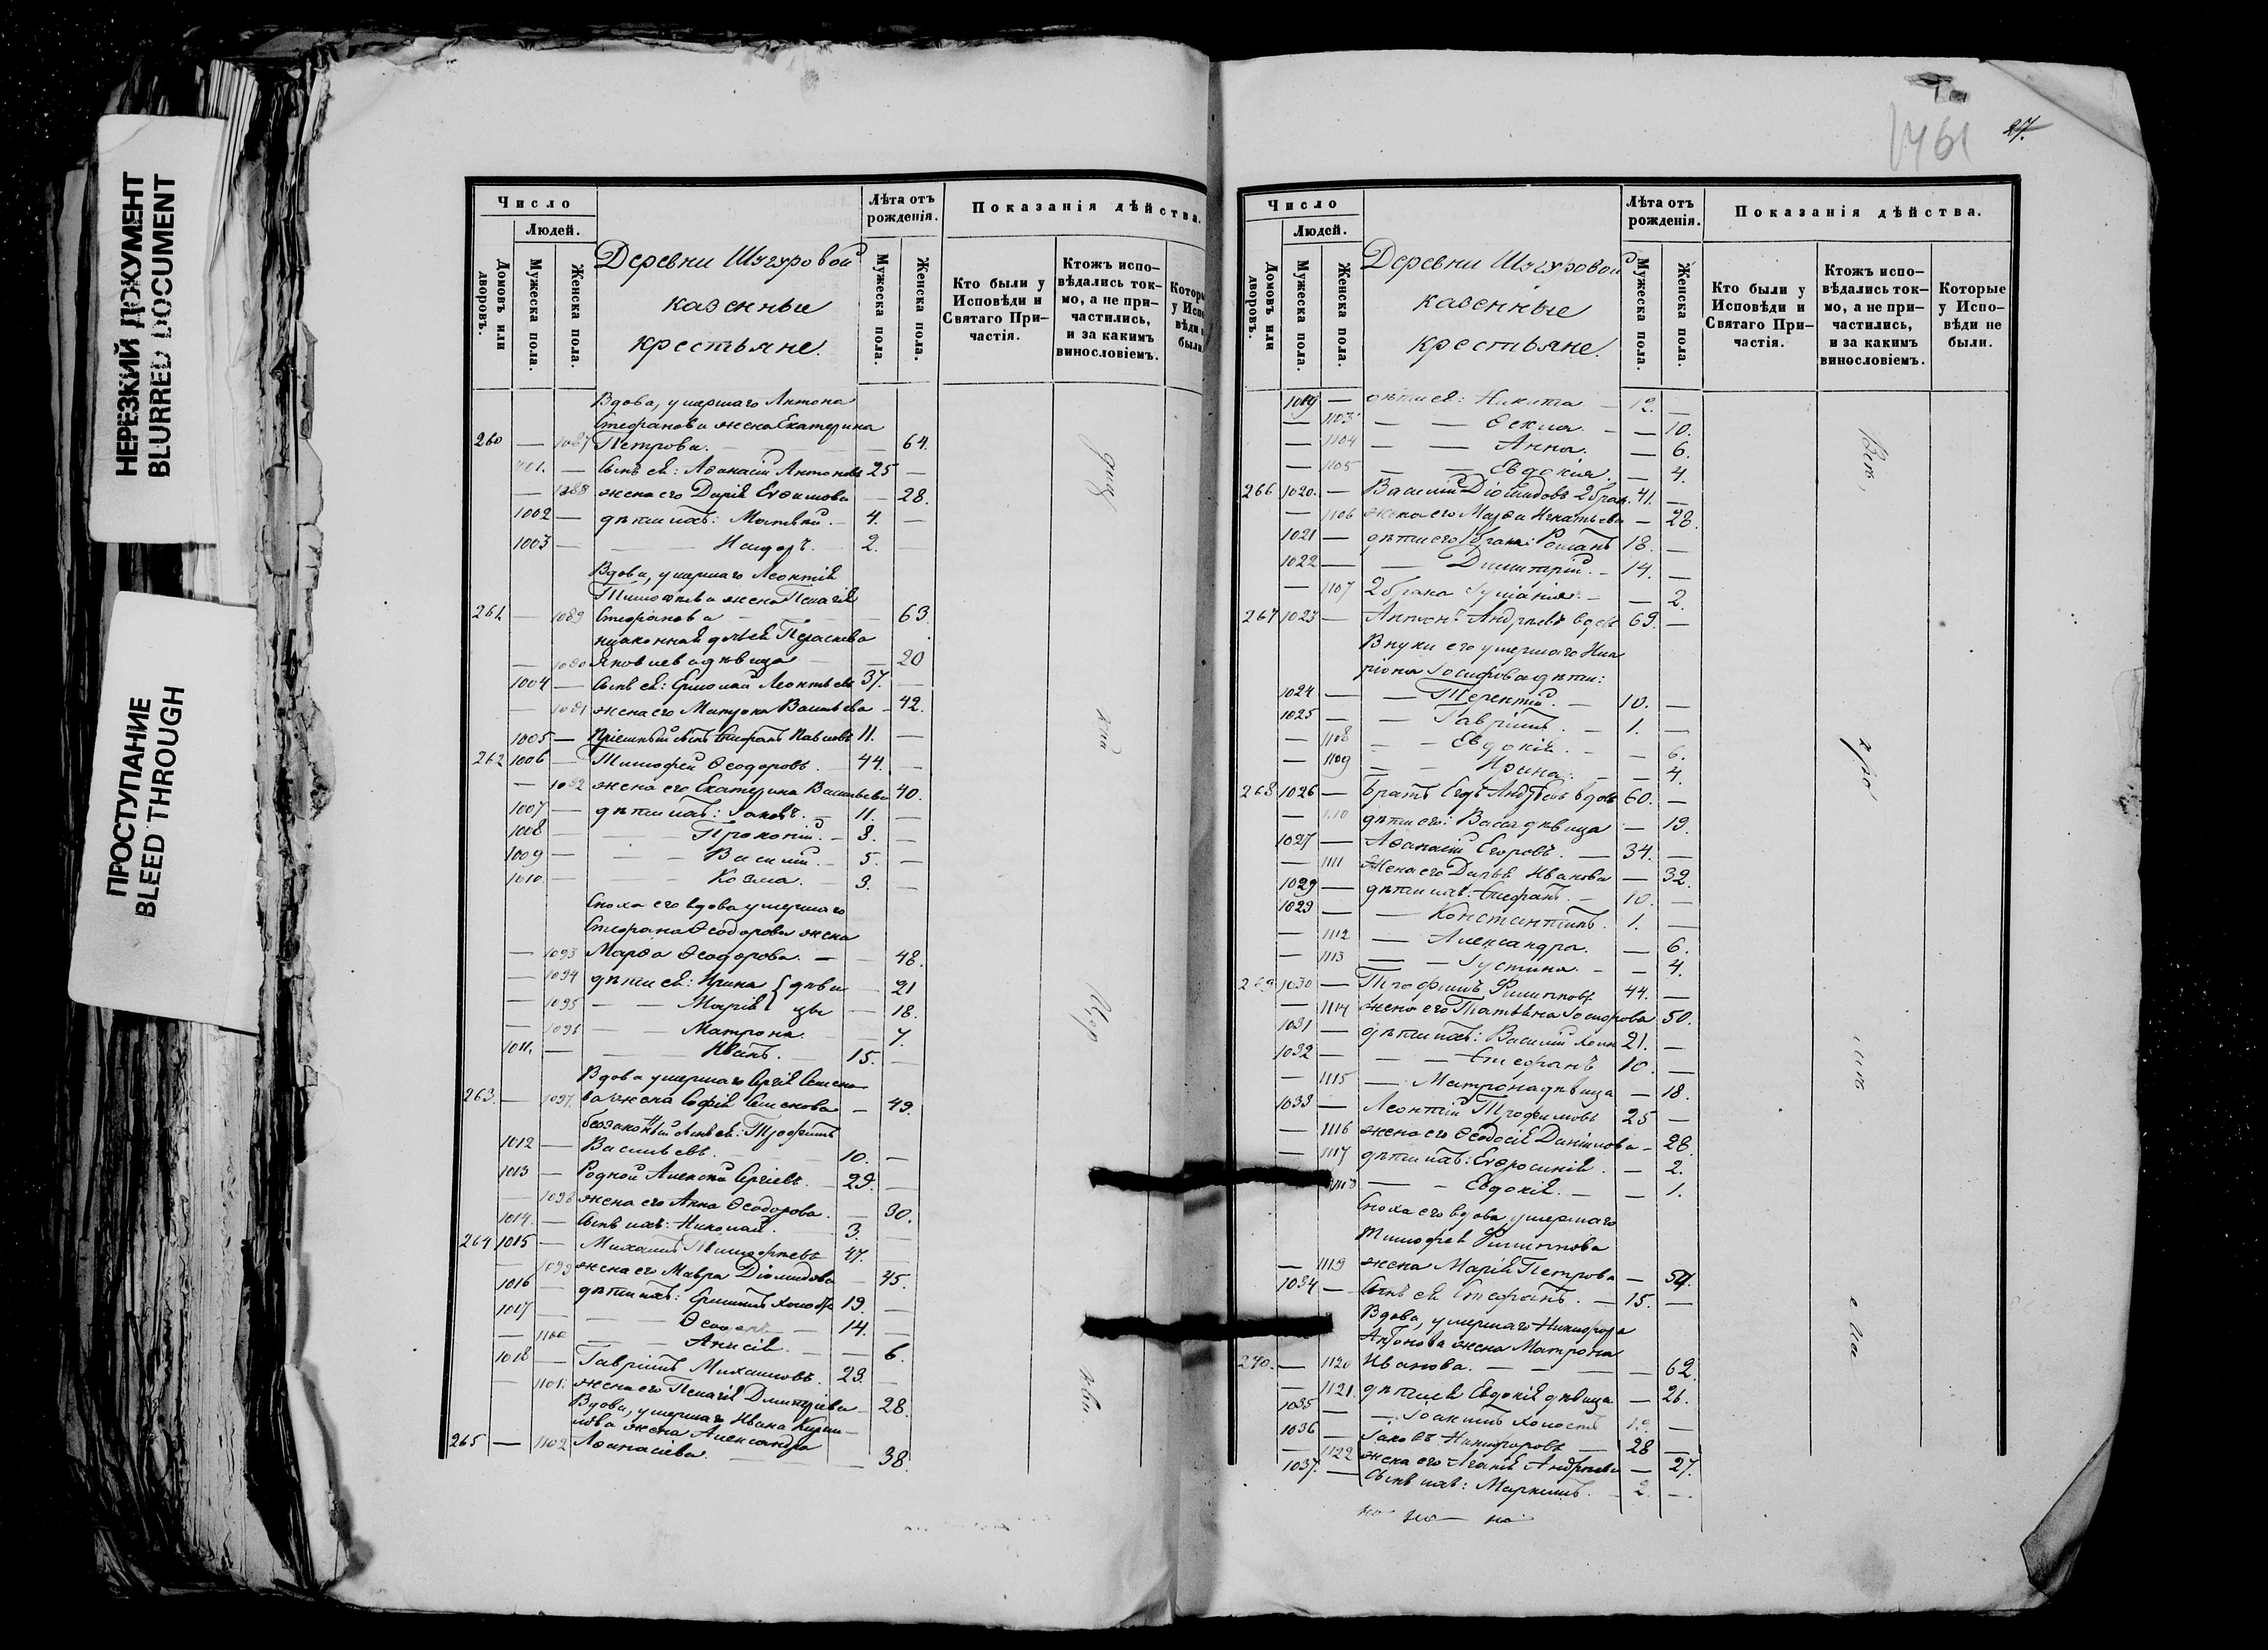 НЕРЕЗКИЙ ДОКУМЕНТ
BLURRED DOCUMENT
ПРОСТУПАНИЕ
BLEED THROUGH
Число
Людей.
Домовъ или дворовъ.
Мужеска пола.
Женска пола.
Деревни Шугуровой
казенные
крестьяне.
Лѣта отъ рожденія.
Мужеска пола.
Женска пола.
Показанія дѣйства.
Кто были у Исповѣди и Святаго При-частія.
Ктожъ испо-вѣдались ток-мо, а не при-частились, и за какимъ винословіемъ.
Вдова, умершаго Антона
Стефанова жена Екатерина
260 — 1087 Петрова. — 64.
1001. — Сынъ ея: Аѳанасій Антоновъ 25 —
— 1088 жена его Дарія Евѳимова — 28.
1002 — дѣти ихъ: Матвѣй. — 4. —
1003 — — 2. —
Вдова, умершаго Леонтія
Тимоѳеева жена Пелагія
261. — 1089 Стефанова — 63.
незаконная дочь ея Параскева
— 1090 Яковлева дѣвица — 20
1004 — Сынъ ея: Ермолай Леонтьевъ 37. —
— 1091 жена его Матрона Васильева — 42.
1005 — Пріемный сынъ Стефанъ Павловъ 11. —
262 1006 — Тимофей Ѳеодоровъ. 44. —
— 1092 жена его Екатерина Васильева 40.
1007 — дѣти ихъ: Іаковъ. — 11. —
1008 — — Прокопій. — 8. —
1009 — — Василій. — 5. —
1010. — — Козма. — 3. —
Сноха его вдова умершаго
Стефана Ѳеодорова жена
— 1093 Марѳа Ѳеодорова. — — 48.
— 1094 дѣти ея: Ирина { дѣви — 21
— 1095 — — Марія { цы — 18.
— 1096 — — Матрона. — 7.
1011. — — Иванъ. 15. —
Вдова умершаго Сергія Семено
263. — 1097. ва жена Софія Семенова — 49.
безаконный сынъ ея: Трофимъ
1012 — Васильевъ. 10. —
1013 — Родной Алексѣй Сергіевъ. 29. —
— 1098 жена его Анна Ѳеодорова. — 30.
1014. — Сынъ ихъ: Николай. 3. —
264 1015 — Михаилъ Тимофѣевъ 47. —
— 1099 жена его Мавра Діомидова — 45.
1016 — дѣти ихъ: холостъ 19. —
1017 — — Ѳеодоръ — 14. —
— 1100 — — Анисія. — 6.
1018 — Гавріилъ Михаиловъ. 29. —
— 1101. жена его Пелагія Димитріева — 28.
Вдова, умершаго Ивана Кирил-
лова жена Александра
265 — 1102 Аѳанасіева. — 38.
1461
27.
Число
Людей.
Домовъ или дворовъ.
Мужеска пола.
Женска пола.
Деревни Шугуровой
казенные
крестьяне.
Лѣта отъ рожденія.
Мужеска пола.
Женска пола.
Показанія дѣйства.
Кто были у Исповѣди и Святаго При-частія.
Ктожъ испо-вѣдались ток-мо, а не при-частились, и за какимъ винословіемъ.
Которые у Испо-вѣди не были.
1019 — дѣти ея: Никита. — 12. —
— 1103 — — Ѳекла. — — 10.
— 1104 — — Анна. — 6.
— 1105 — — Евдокія. — 4.
266 1020. — Василій Діомидовъ 2 брак. 41. —
— 1106 жена его Марѳа Игнатьева — 28.
1021 — дѣти его 1 брака: Романъ 18. —
1022 — — Димитрій. — 14. —
— 1107 2 брака Іуліанія. — — 2.
267 1023 — Антонъ Андреевъ вдов 69. —
Внуки его умершаго Ила
ріона Іосифова дѣти:
1024 — — Терентій. — 10. —
1025 — — Гавріилъ. — 1. —
— 1108 — — Евдокія. — — 6.
— 1109 — — Ирина. — — 4.
268 1026 — Братъ Егоръ Андреевъ вдовъ 60. —
— 1110 дѣти его: Васса дѣвица — 19.
1027 — Аѳанасій Егоровъ. — 34. —
— 1111 Жена его Дарья Иванова — 32.
1029 — дѣти ихъ: Стефанъ. — 10. —
1029 — — Константинъ. 1. —
— 1112 — Александра. — 6.
— 1113 — — Іустина. — — 4.
269 1030 — Трофимъ Филипповъ 44. —
— 1114 жена его Татьяна Іосифова 50.
1031 — дѣти ихъ: Василій холос 21. —
1032 — — — Стефанъ 10. —
— 1115 — Матрона дѣвица — 18.
1033 — Леонтій Трофимовъ 25 —
— 1116 жена его Ѳеодосія Даниилова — 28.
— 1117 дѣти ихъ: Евфросинія. — 2.
1118 — — Евдокія. — — 1.
Сноха его вдова умершаго
Тимофея Филиппова
— 1119 жена Марія Петрова — 54.
1034 — Сынъ ея Стефанъ. — 15. —
Вдова, умершаго Никифора
Антонова жена Матрона
270. — 1120 Иванова. — — — 62.
— 1121. дѣти ея Евдокія дѣвица — 26.
1035 — — Іоакимъ холостъ —
1036 — Іаковъ Никифоровъ — 28 —
— 1122 жена его Агапія Андреева — 27.
1037. — Сынъ ихъ: Маркеллъ. — 2. —